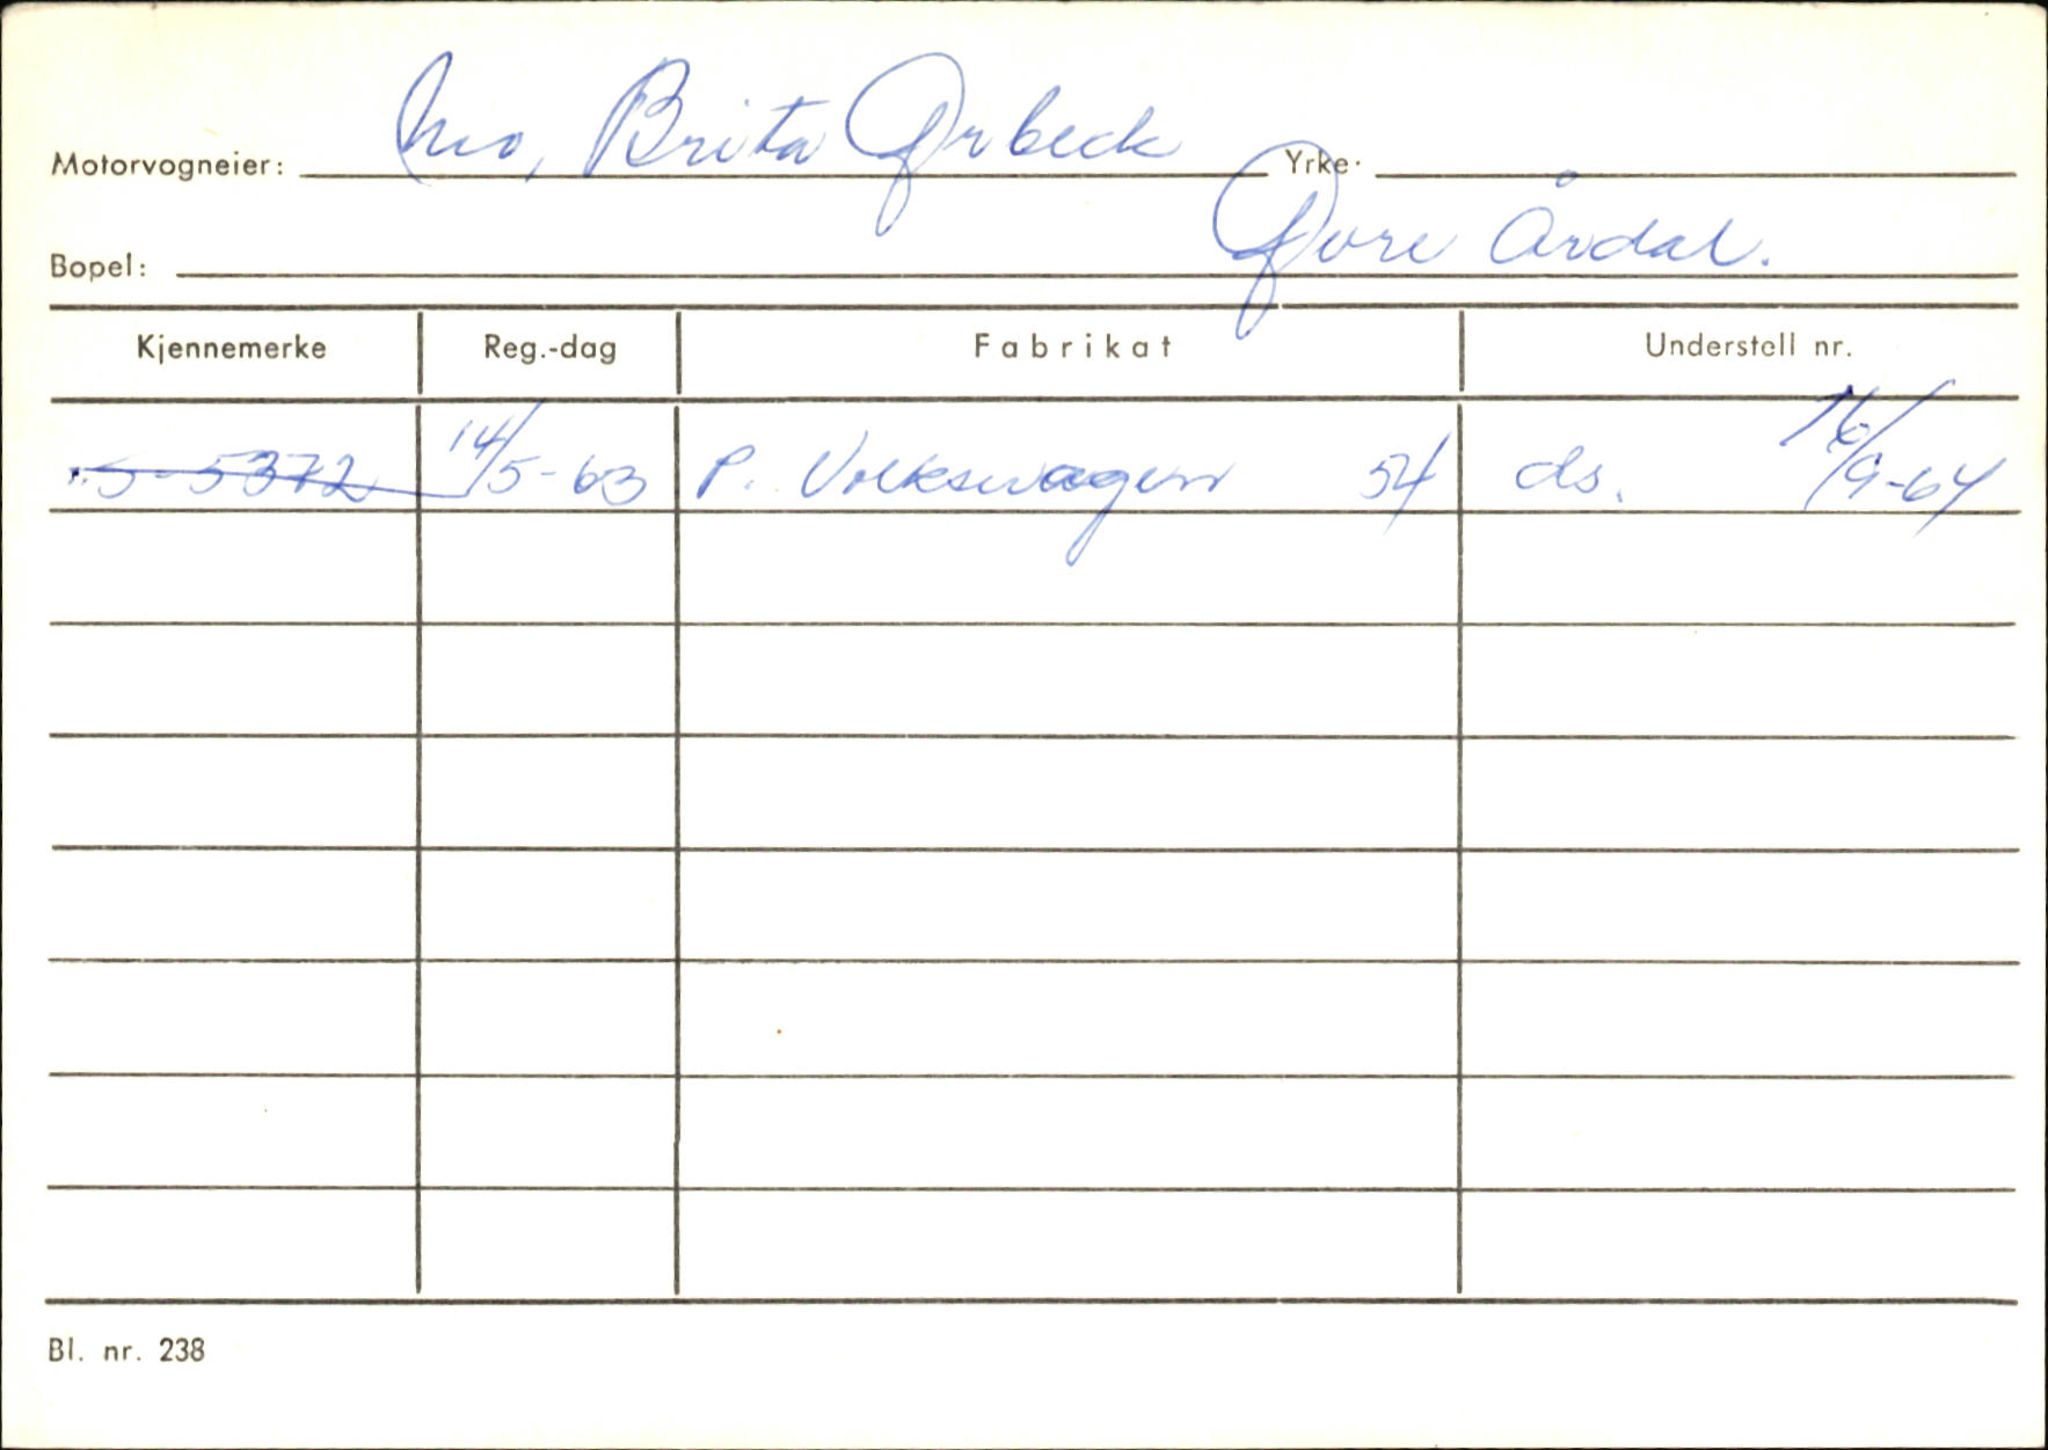 Motorvogneier: Mo, Brita Ørbeck Yrke.
Bopel: Øvre Årdal.
Kjennemerke Reg.-dag Fabrikat Understell nr.
S-5372 14/5-63 P. Volkswagen 54 ds. 16/9-64
Bl. nr. 238